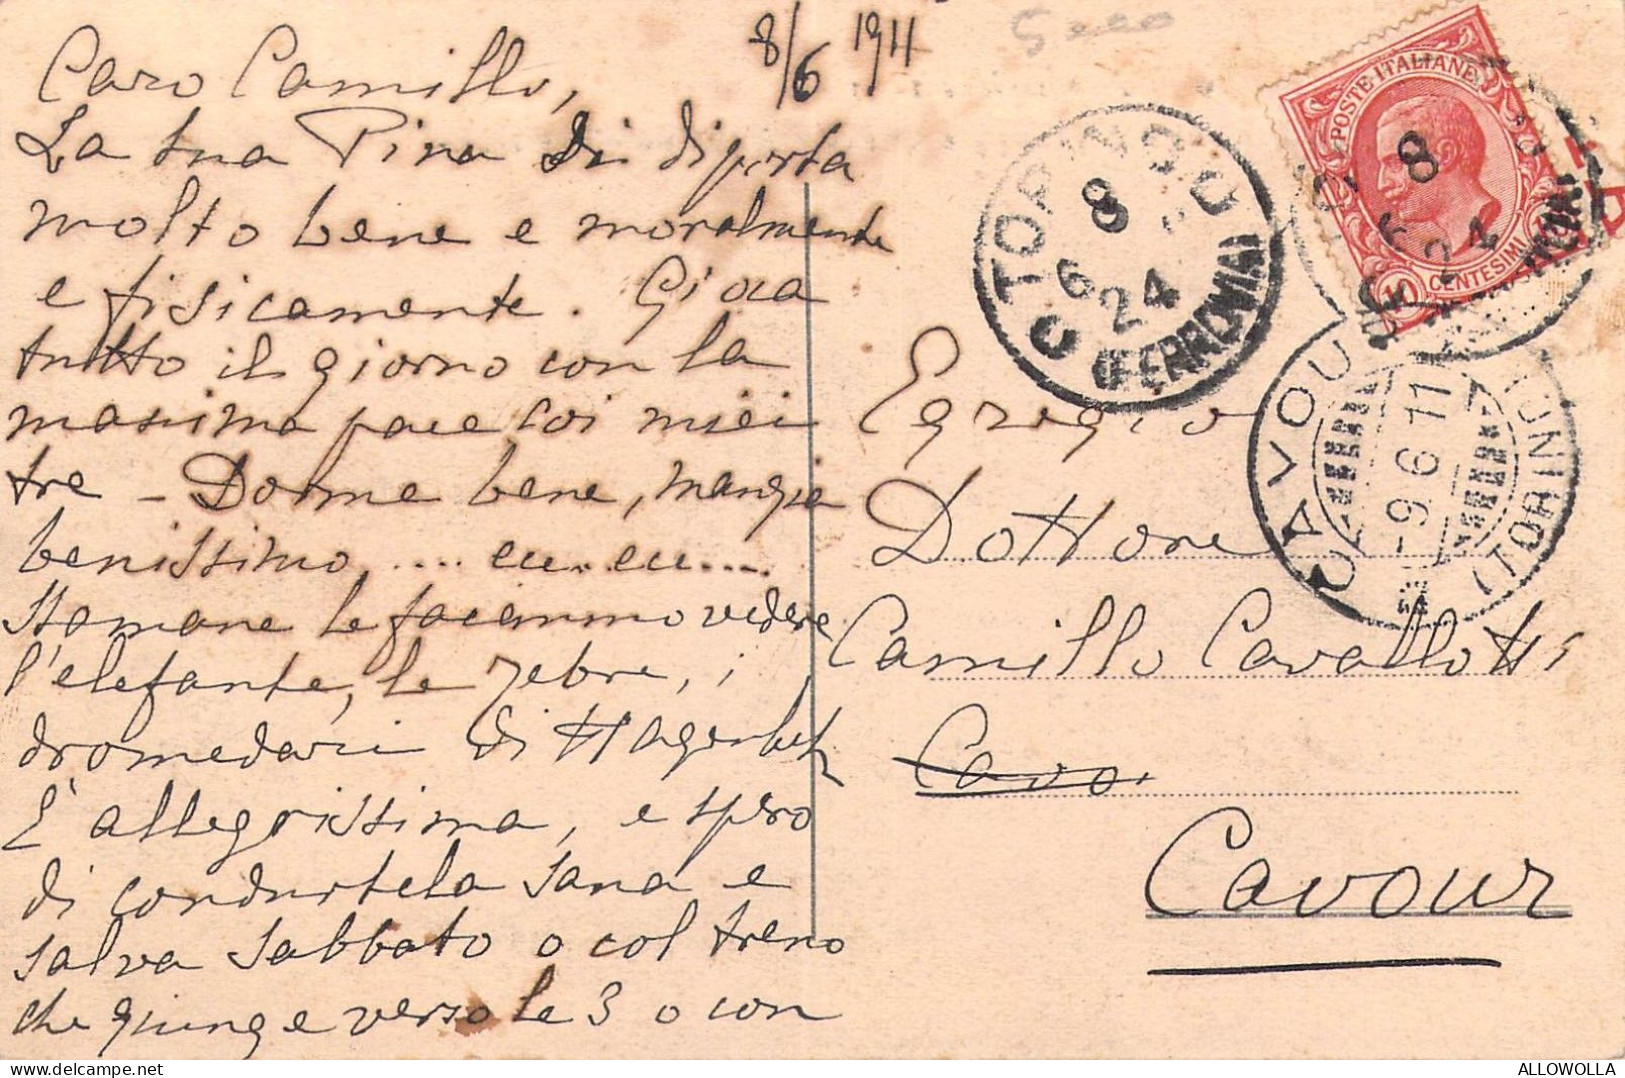 8/6 1911
Caro Camillo,
La tua Pina si diporta
molto bene e moralmente
e fisicamente. Gioca
tutto il giorno con la
massima pace coi miei
tre - Dorme bene, mangia
benissimo, .... eu..eu....
Stamane le facemmo vedere
l'elefante, le zebre, i
dromedari di Hagenbeck
È allegrissima, e spero
di condurtela sana e
salva sabbato o col treno
che giunge verso le 3 o con
Egregio
Dottore
Camillo Cavallotti
Cavo
Cavour
TORINO
8
6 24
(FERROVIA)
POSTE ITALIANE
10 CENTESIMI
8
24
CAVOUR
-9.6.11
(TORINO)
ALLOWOLLA